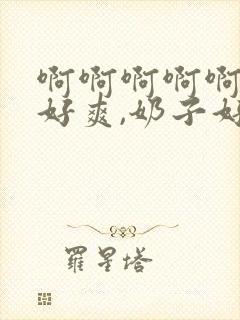 啊啊啊啊啊
好爽,奶子好
羅星塔